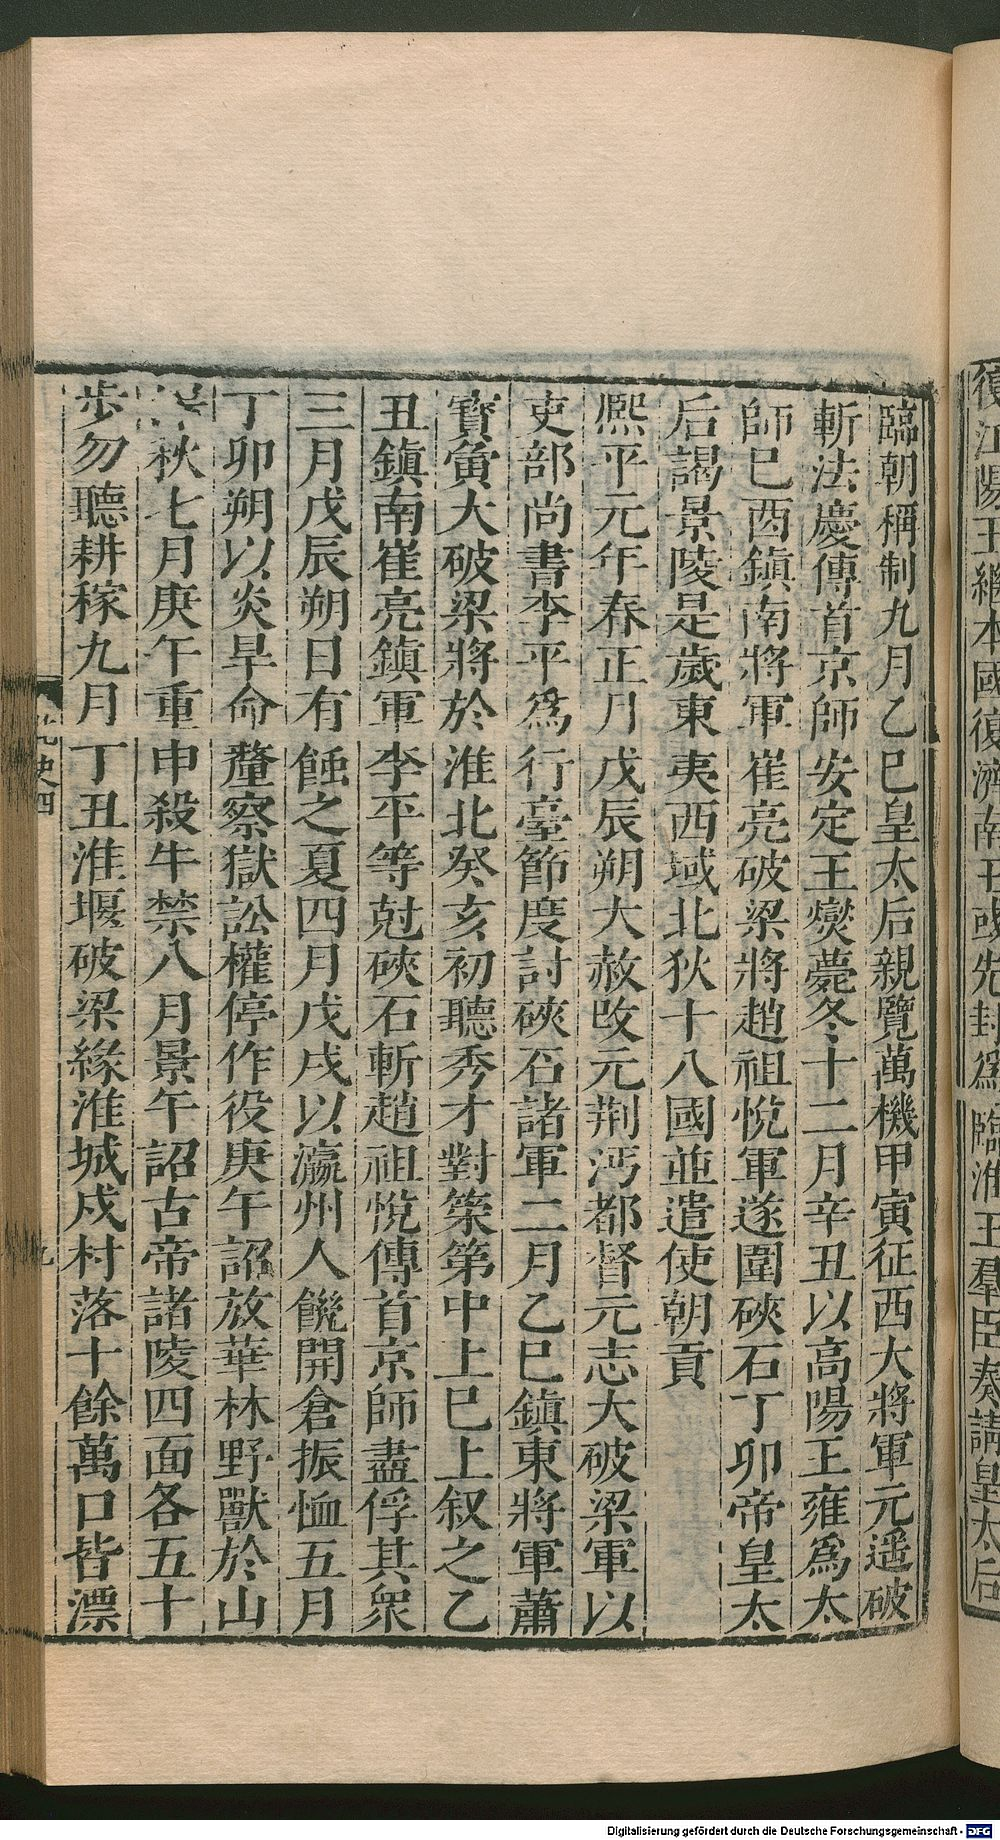 復江陽王繼本國復濟南王彧先封爲臨淮王羣臣奏請皇太后
臨朝稱制九月乙巳皇太后親覽萬機甲寅征西大將軍元遥破
斬法慶傳首京師安定王爕薨冬十二月辛丑以高陽王雍爲太
師已酉鎮南將軍崔亮破梁將趙祖悅軍遂圍硤石丁卯帝皇太
后謁景陵是歲東夷西域北狄十八國並遣使朝貢
熙平元年春正月戊辰朔大赦改元荆沔都督元志大破梁軍以
吏部尚書李平爲行臺節度討硤石諸軍二月乙巳鎮東將軍蕭
寳寅大破梁將於淮北癸亥初聽秀才對策第中上已上叙之乙
丑鎮南崔亮鎮軍李平等尅硤石斬趙祖悅傳首京師盡俘其衆
三月戊辰朔日有蝕之夏四月戊戌以瀛州人饑開倉振恤五月
丁卯朔以炎旱命釐察獄訟權停作役庚午詔放華林野獸於山
秋七月庚午重申殺牛禁八月景午詔古帝諸陵四面各五十
步勿聽耕稼九月丁丑淮堰破梁緣淮城戍村落十餘萬口皆漂
北史四
九
Digitalisierung gefördert durch die Deutsche Forschungsgemeinschaft - DFG